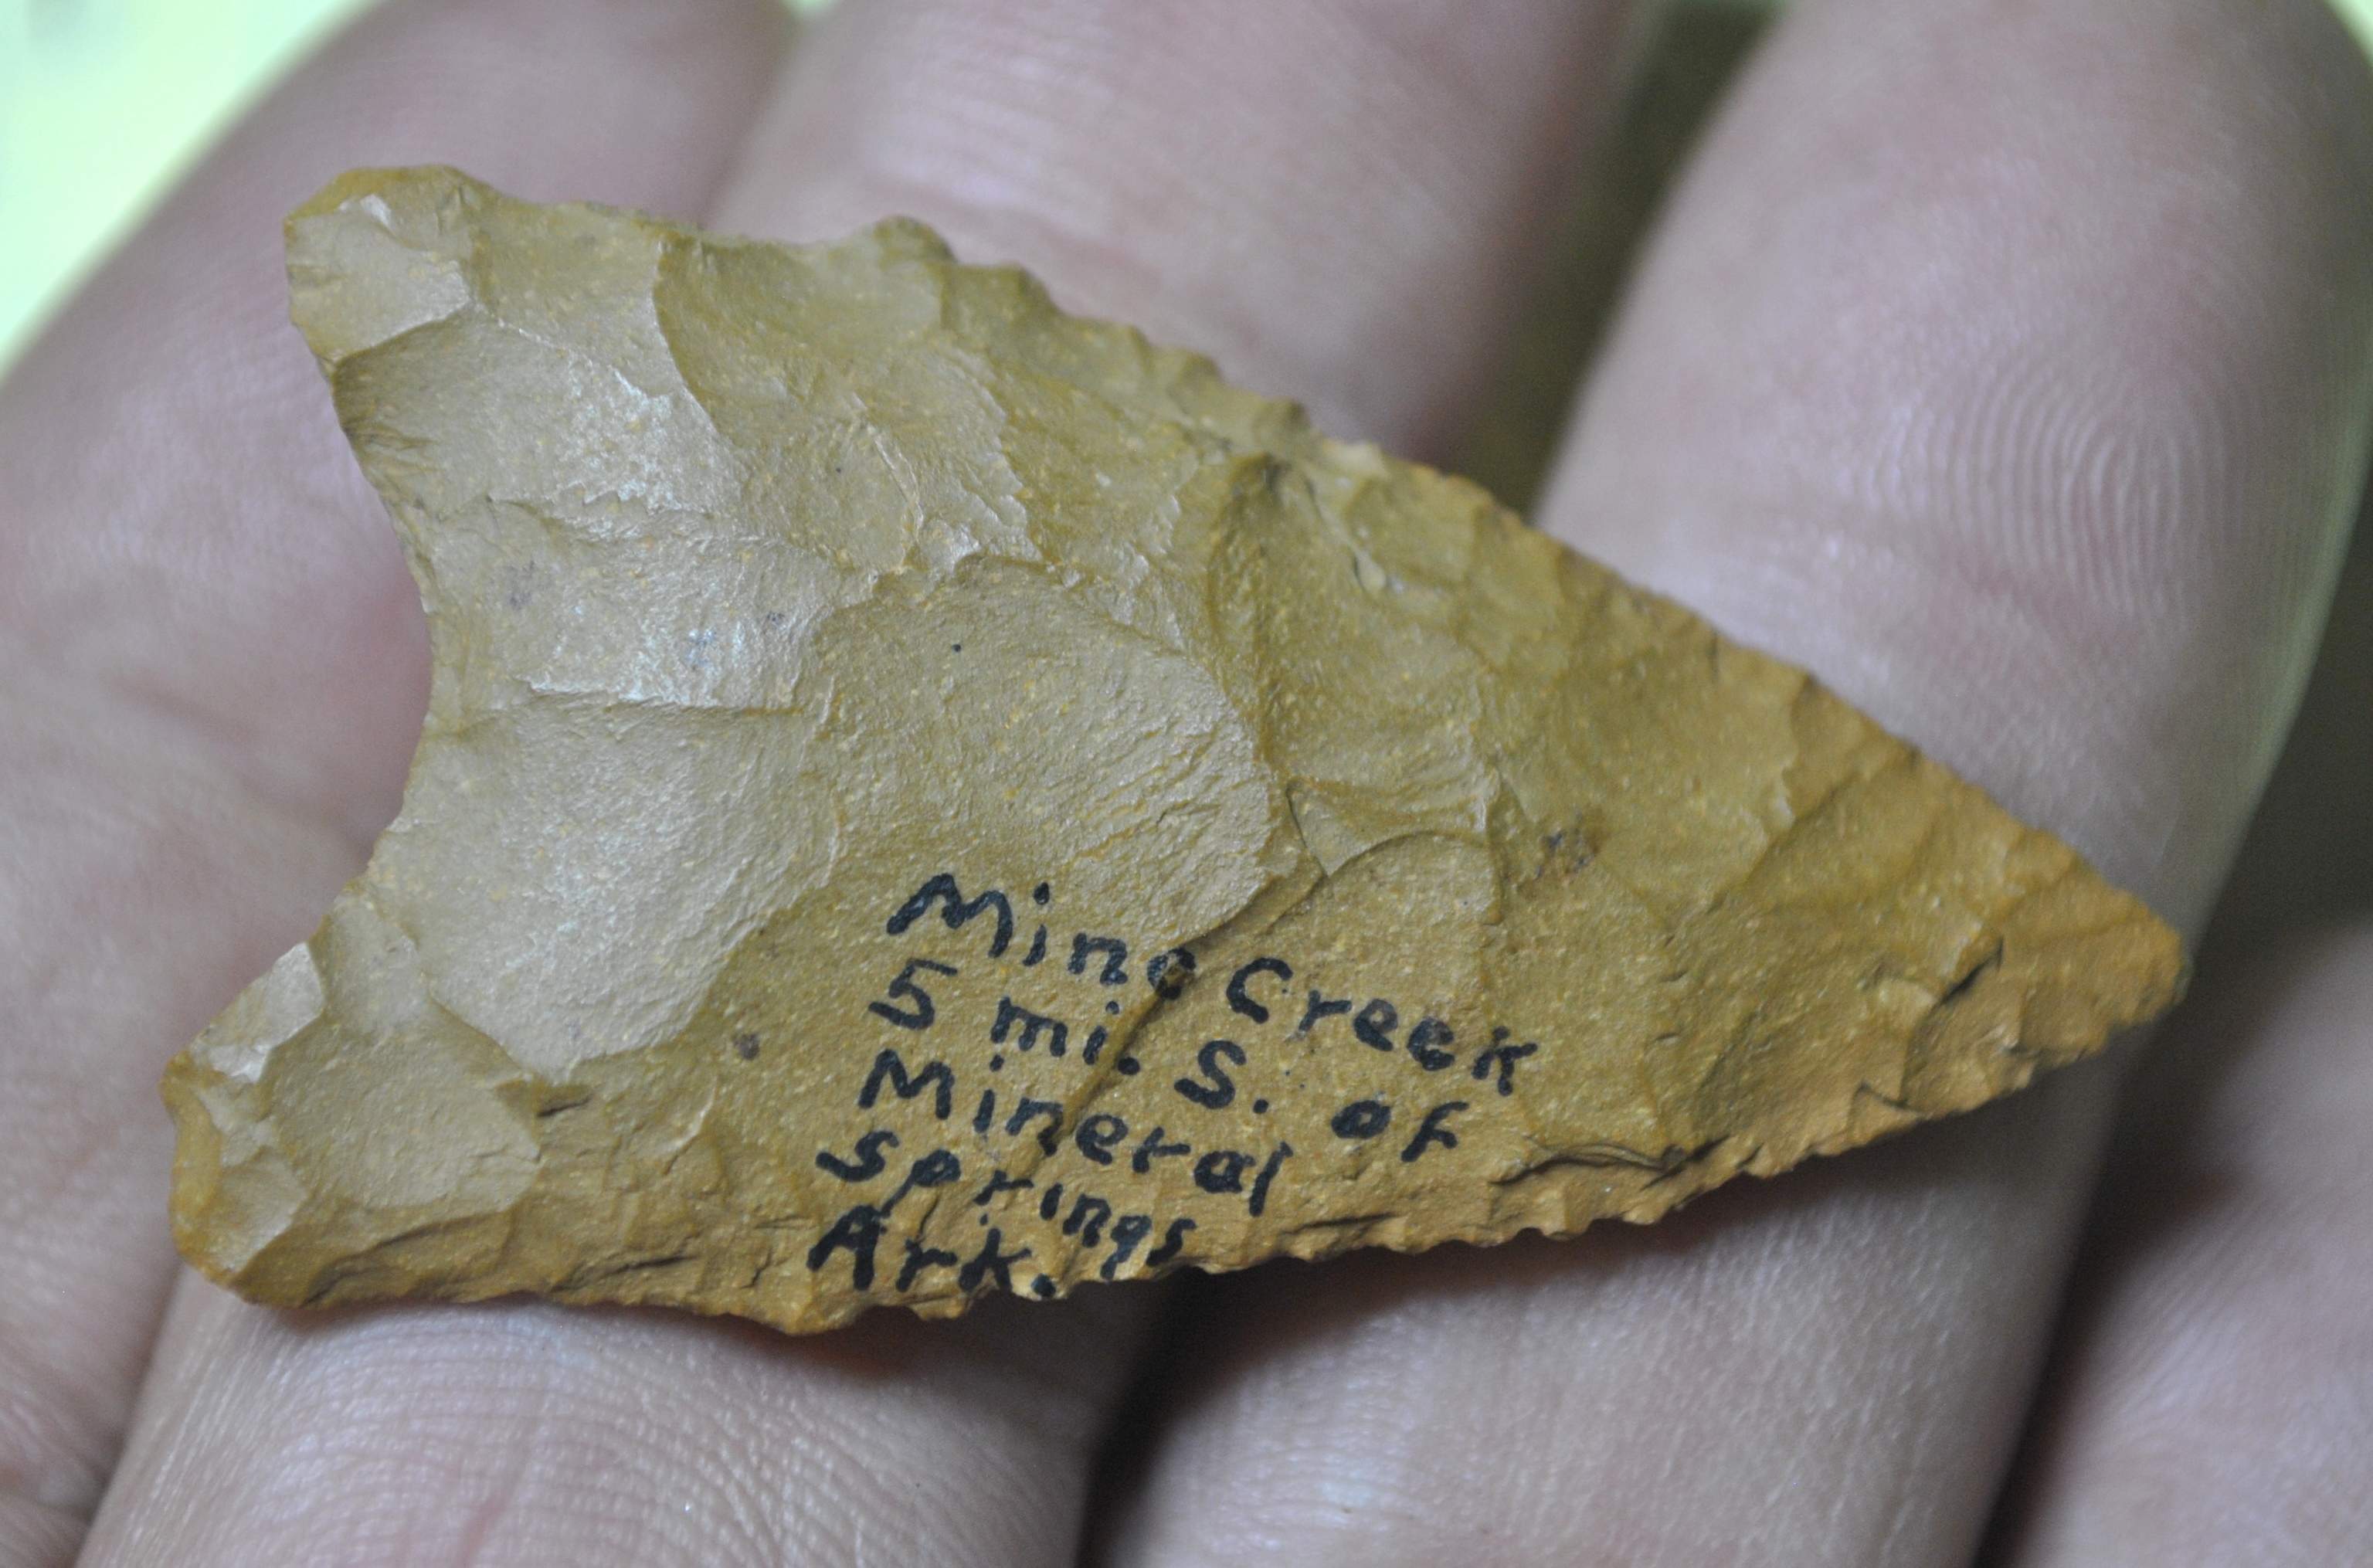 Mine Creek
5 mi. S. of
Mineral
Springs
Ark.